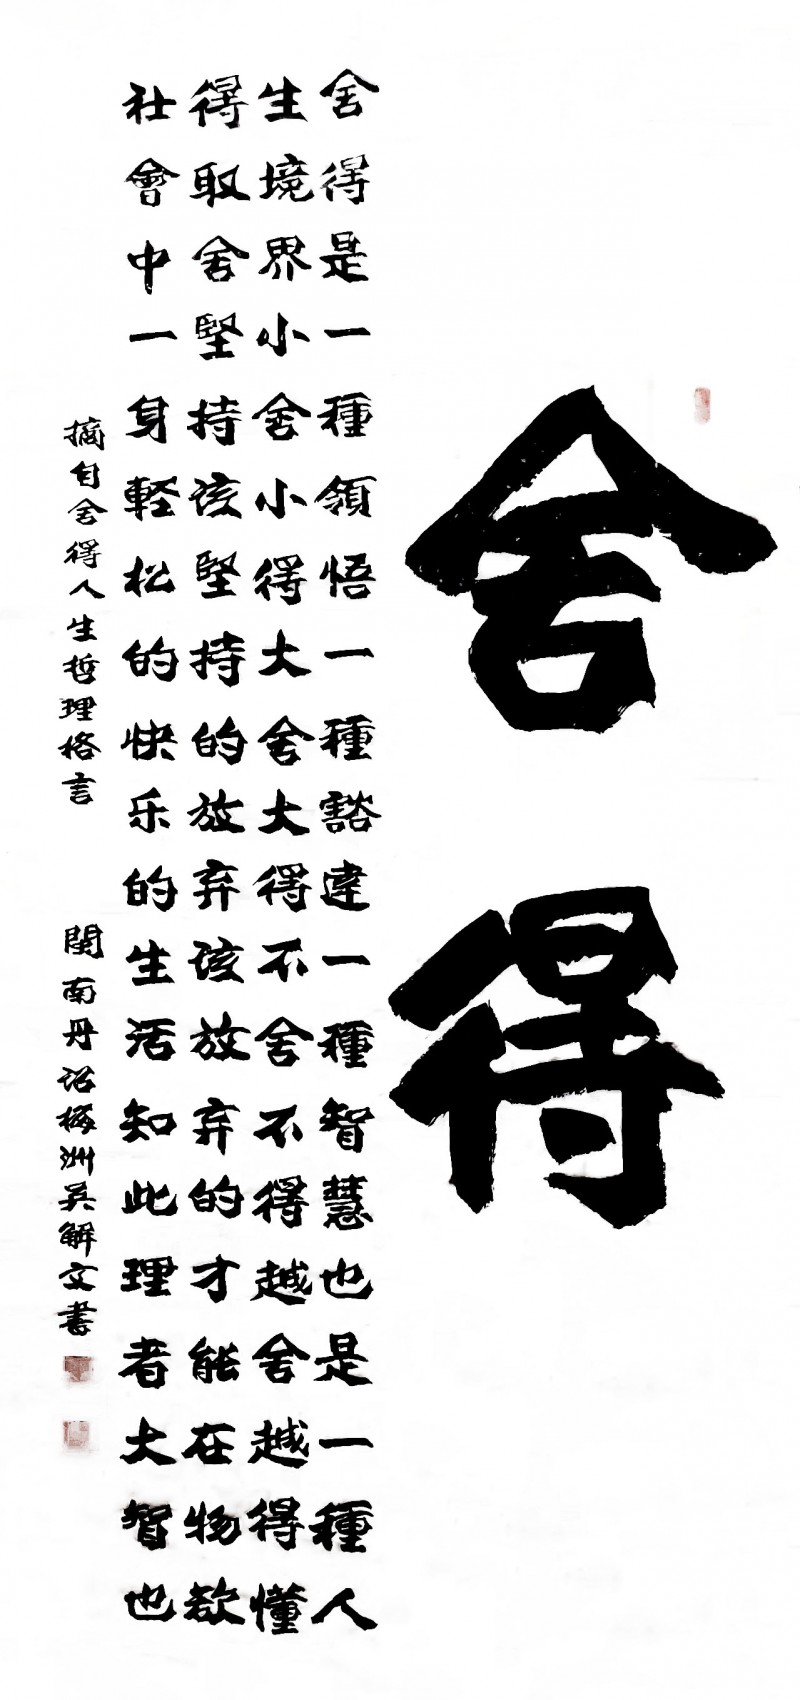 舍得
舍得是一種領悟一種豁達一種智慧也是一種人
生境界小舍小得大舍大得不舍不得越舍越得懂
得取舍堅持该堅持的放弃该放弃的才能在物欲
社會中一身輕松的快乐的生活知此理者大智也
摘自舍得人生哲理格言
閩南丹诏梅洲吴解文書